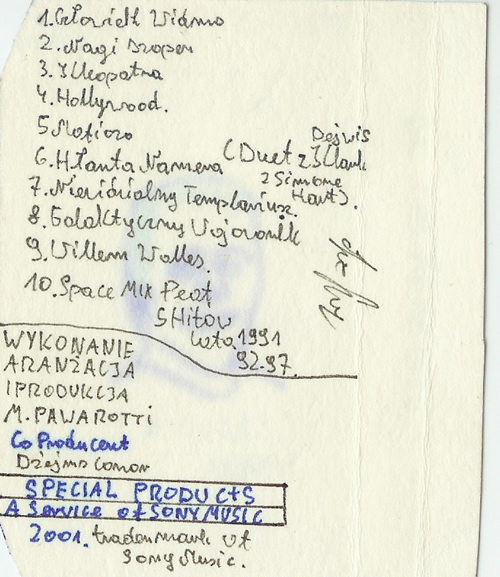 1. Człowiek Widmo
2. Nagi Szopen
3. Kleopatra
4. Hollywood.
5 Mafiozo
6. Hłanta Namera (Duet z Klauk Dejwis
z Simone Haut).
7. Niewidzialny Templariusz.
8. Galaktyczny Wojownik
9. Willem Walles.
10. Space Mix Peat
5 Hitów
Lata 1991
92-97.
WYKONANIE
ARANŻACJA
I PRODUKCJA
M. PAWAROTTI
Co Producent
Dżejms Conor
SPECIAL PRODUCTS
A Service of SONY MUSIC
2001. trademark of
Sony Music.